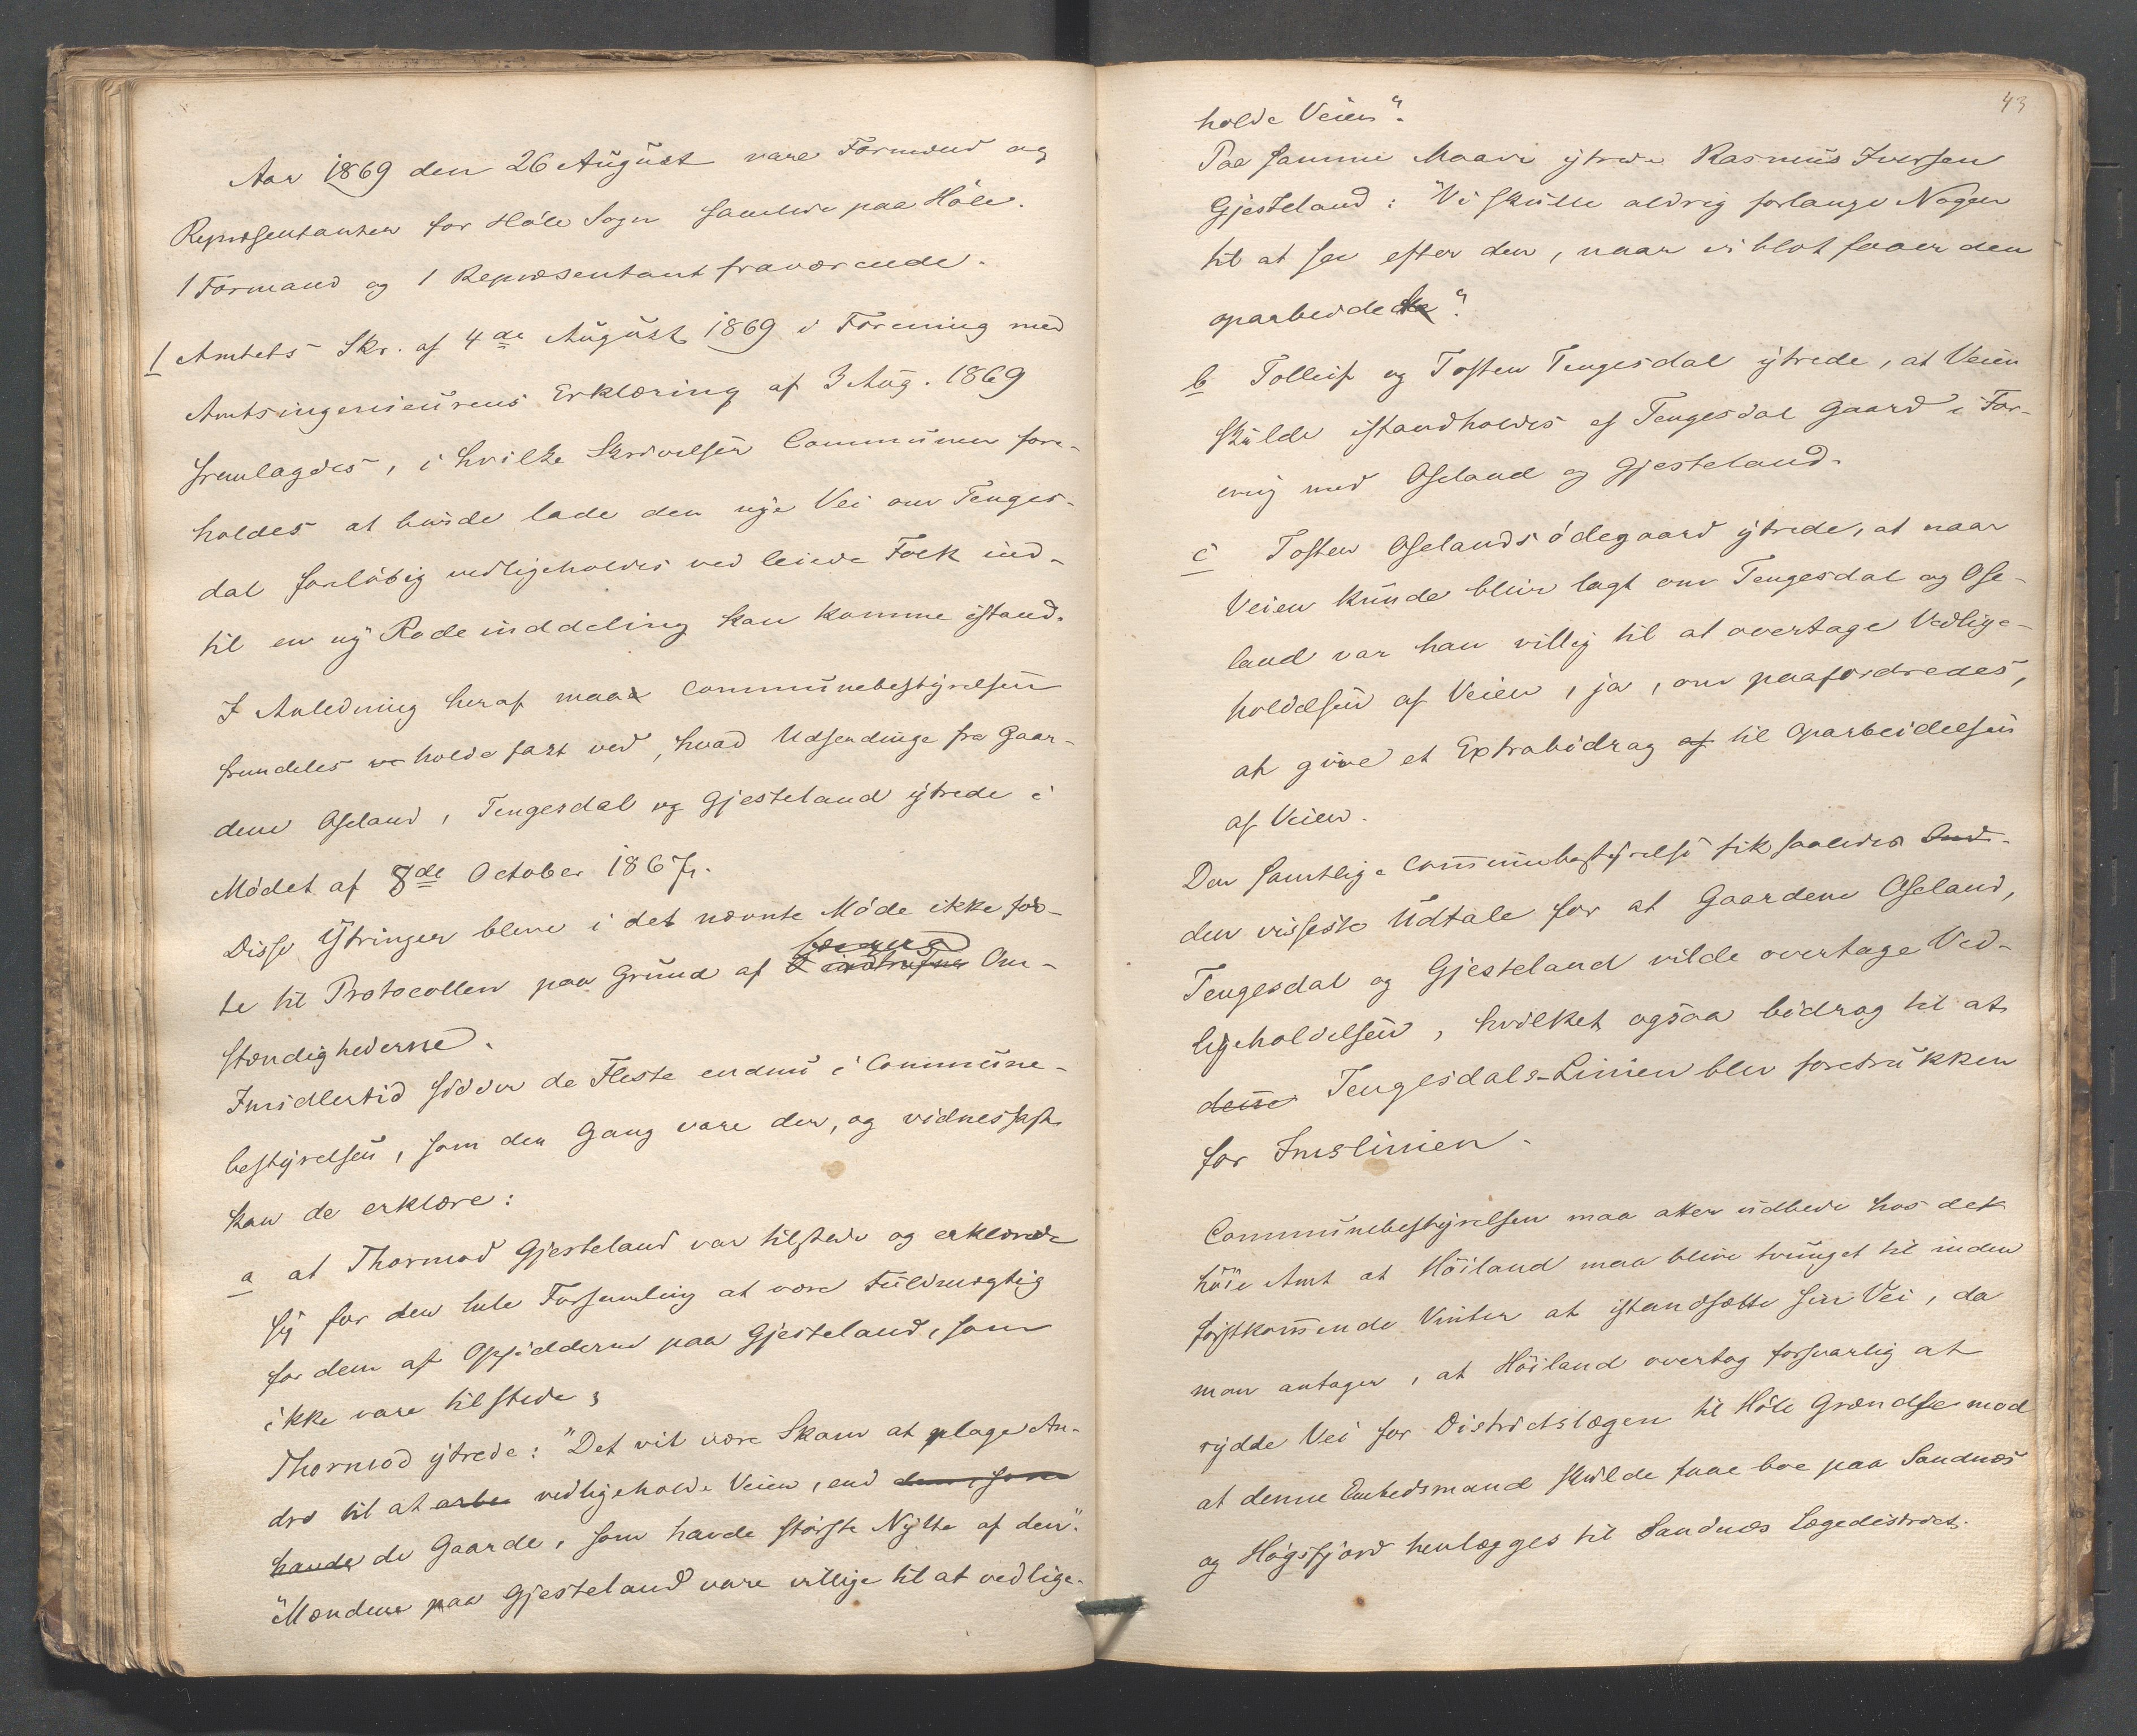 Aar 1869 den 26 August vare Formænd og
Repræsentanter for Höle Sogn samlede paa Höle.
1 Formand og 1 Repræsentant fraværende.
1 Amtets Skr. af 4de August 1869 i Forening med
Amtsingenieurens Erklæring af 3 Aug. 1869
fremlagdes, i hvilke Skrivelser Communen fore-
holdes at burde lade den nye Vei om Tenges-
dal foreløbig vedligeholdes ved leiede Folk ind-
til en ny Rodeinddeling kan komme istand.
I Anledning heraf maa Communebestyrelsen
fremdeles holde fast ved, hvad Udsendinge fra Gaar-
dene Oseland, Tengesdal og Gjesteland ytrede i
Mödet af 8de October 1867.
Disse Ytringer bleve i det nævnte Möde ikke för-
te til Protocollen paa Grund af Om-
stændighederne.
Imidlertid sidder de Fleste endnu i Commune-
bestyrelsen, som den Gang vare der, og vidnesfast
kan de erklære:
a at Thormod Gjesteland var tilstede og erklærede
sig for den hele Forsamling at være Fuldmægtig
for dem af Opsidderne paa Gjesteland, som
ikke vare tilstede;
Thormod ytrede: "Det vil være Skam at plage An-
dre til at arbe vedligeholde Veien, end dem, som
havde de Gaarde, som havde störste Nytte af den".
"Mændene paa Gjesteland vare villige til at vedlige-
43
holde Veien".
Paa samme Maade ytrede Rasmus Iversen
Gjesteland: "Vi skulle aldrig forlange Nogen
til at see efter den, naar vi blot faaer den
oparbeidet".
b Tolleif og Tosten Tengesdal ytrede, at Veien
skulde istandholdes af Tengesdal Gaard i For-
ening med Oseland og Gjesteland.
c Tosten Oselandsödegaard ytrede, at naar
Veien kunde blive lagt om Tengesdal og Ose-
land var han villig til at overtage Vedlige-
holdelsen af Veien, ja, om paafordredes,
at give et Extrabidrag af til Oparbeidelsen
af Veien.
Den samtlige Communebestyrelse fik saaledes
den visseste Udtale for at Gaardene Oseland,
Tengesdal og Gjesteland vilde overtage Ved-
ligeholdelsen, hvilket ogsaa bidrog til at
denne Tengesdals-Linien blev foretrukken
for Imslinien.
Communebestyrelsen maa atter udbede hos det
höie Amt at Höiland maa blive tvunget til inden
förstkommende Vinter at istandsætte sin Vei, da
man antager, at Höiland overtog forsvarlig at
rydde Vei for Districtslægen til Höle Grændse mod
at denne Embedsmand skulde faae boe paa Sandnæs
og Högsfjord henlægges til Sandnæs Lægedistrict.